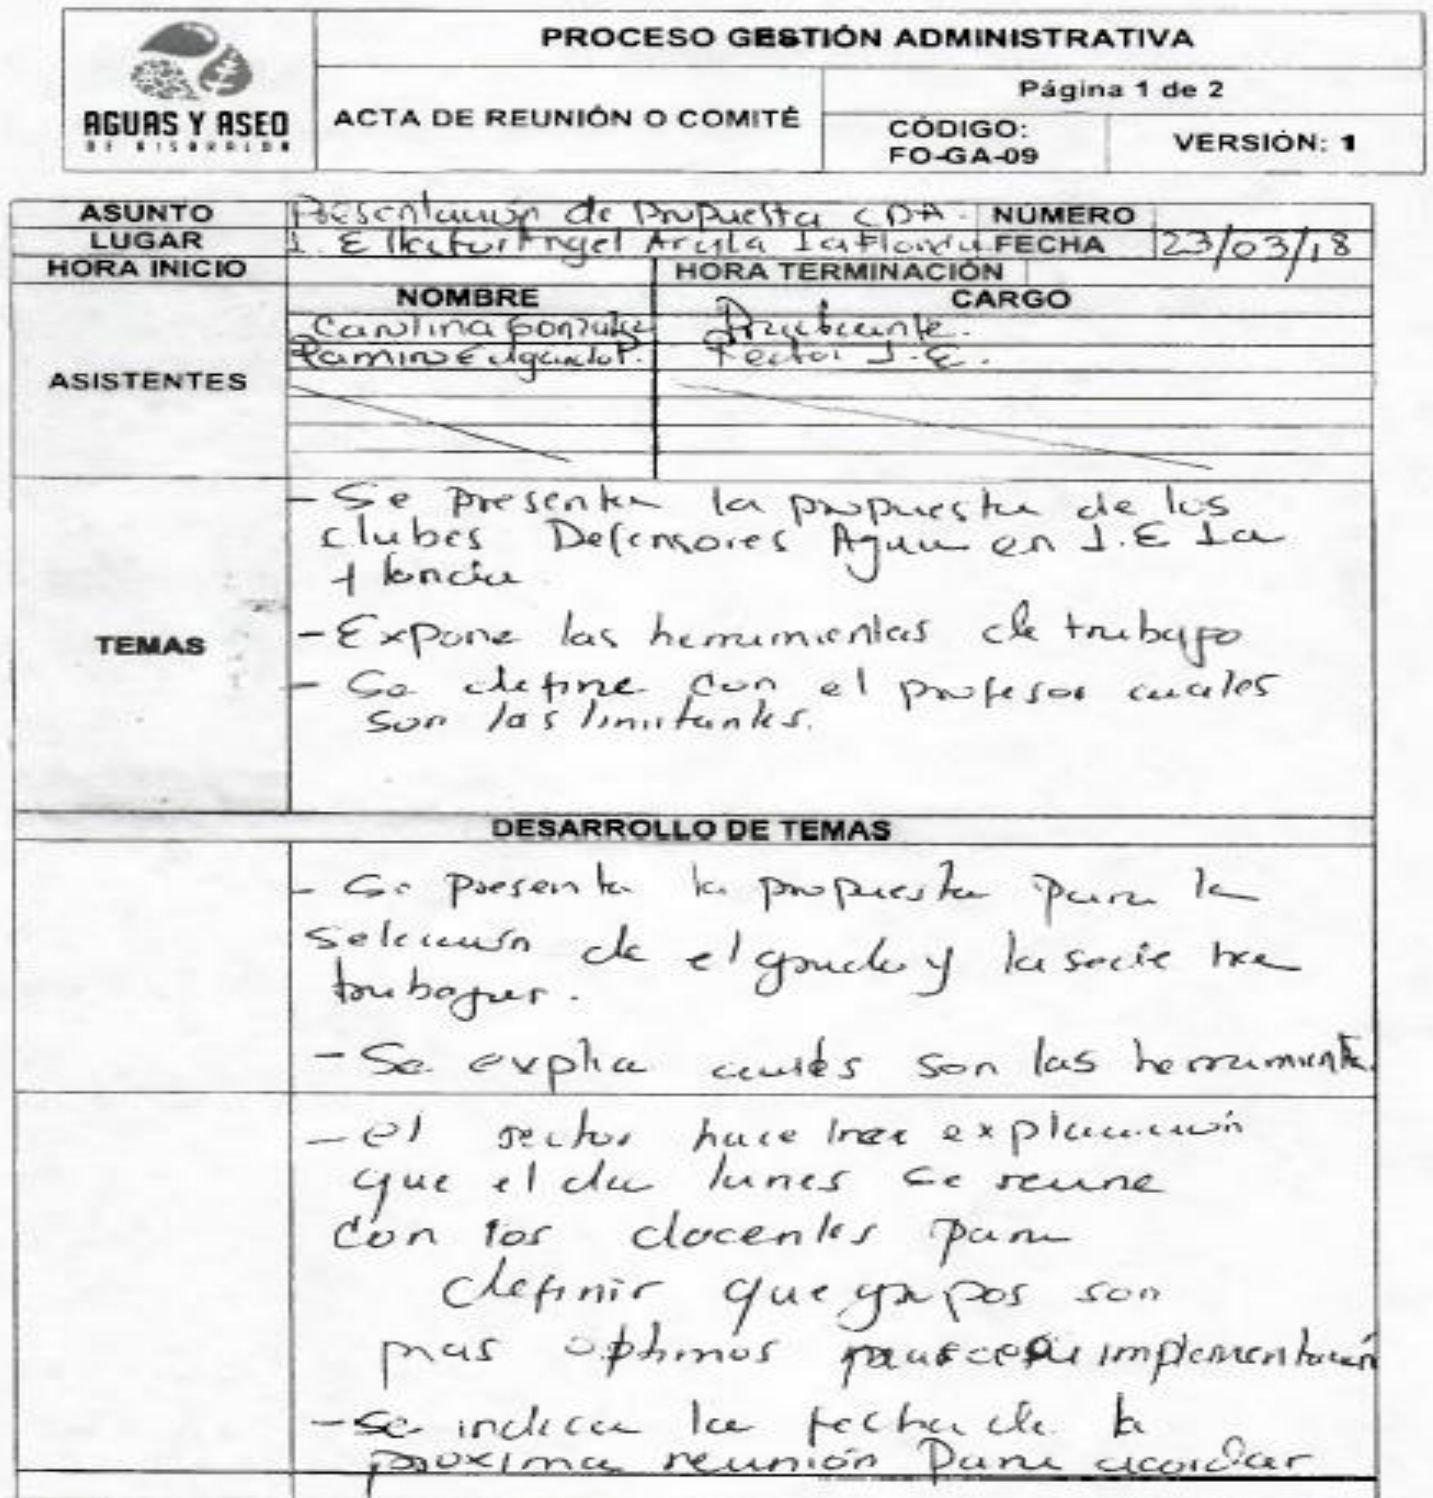 PROCESO GESTIÓN ADMINISTRATIVA
AGUAS Y ASEO
DE RISARALDA
ACTA DE REUNIÓN O COMITÉ
Página 1 de 2
CÓDIGO:
FO-GA-09
VERSIÓN: 1
ASUNTO Presentación de Propuesta CDA. NÚMERO
LUGAR I. E Angel La Florida FECHA 23/03/18
HORA INICIO HORA TERMINACIÓN
ASISTENTES
NOMBRE CARGO
Carolina Gonzalez
Ramiro P. Rector I.E.
TEMAS
- Se presenta la propuesta de los
clubes Defensores Agua en I.E La
florida
- Expone las herramientas de trabajo
- Se define con el profesor cuales
son las limitantes.
DESARROLLO DE TEMAS
- Se presenta la propuesta para la
selección de el grado y la sede
trabajar.
- Se explica cuales son las herramienta
- el rector hace explicación
que el dia lunes se reune
con los docentes para
definir que grupos son
mas optimos implementación
- se indica la fecha de la
proxima reunión Para acordar